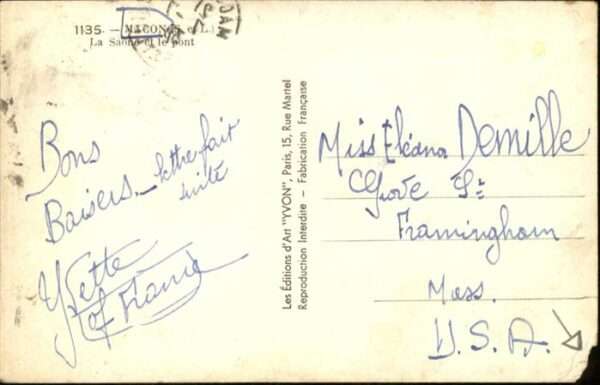 1135. — MACON (S.-et-L.)
La Saône et le pont
JAN
Bons
Baisers — lettre fait
suite
Yvette
of France
Les Éditions d'Art "YVON", Paris, 15, Rue Martel
Reproduction Interdite — Fabrication Française
Miss Eléana Demille
Grove St
Framingham
Mass.
U.S.A.